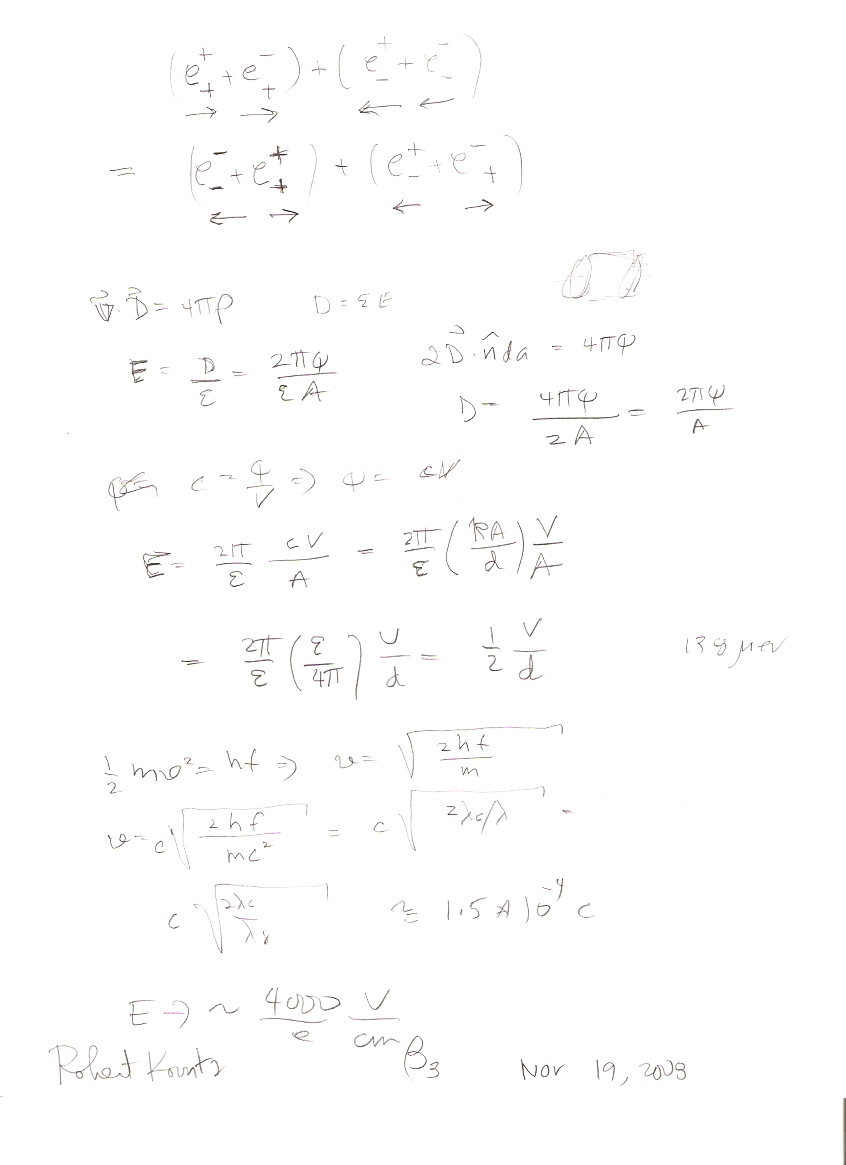 (e⁺₊ + e⁻₊) + (e⁺₋ + e⁻₋)
→ → ← ←
= (e⁻₋ + e⁺₊) + (e⁺₋ + e⁻₊)
← → ← →
∇⃗·D⃗ = 4πρ D = εE
2D⃗·n̂da = 4πφ
E = D/ε = 2πφ/εA
D = 4πφ/2A = 2πφ/A
c = φ/V ⇒ φ = cV
E = 2π/ε cV/A = 2π/ε (kA/d) V/A
= 2π/ε (ε/4π) V/d = 1/2 V/d 138 μeV
1/2 mv² = hf ⇒ v = √(2hf/m)
v = c√(2hf/mc²) = c√(2λc/λ) =
c√(2λc/λγ) ≈ 1.5 × 10⁻⁴ c
E → ~ 4000/e V/cm
Robert Kountz β₃ Nov 19, 2008